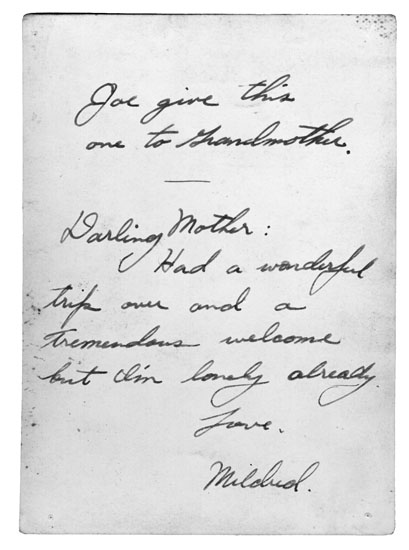 Joe give this
one to Grandmother.
Darling Mother:
Had a wonderful
trip over and a
tremendous welcome
but I'm lonely already.
Love.
Mildred.